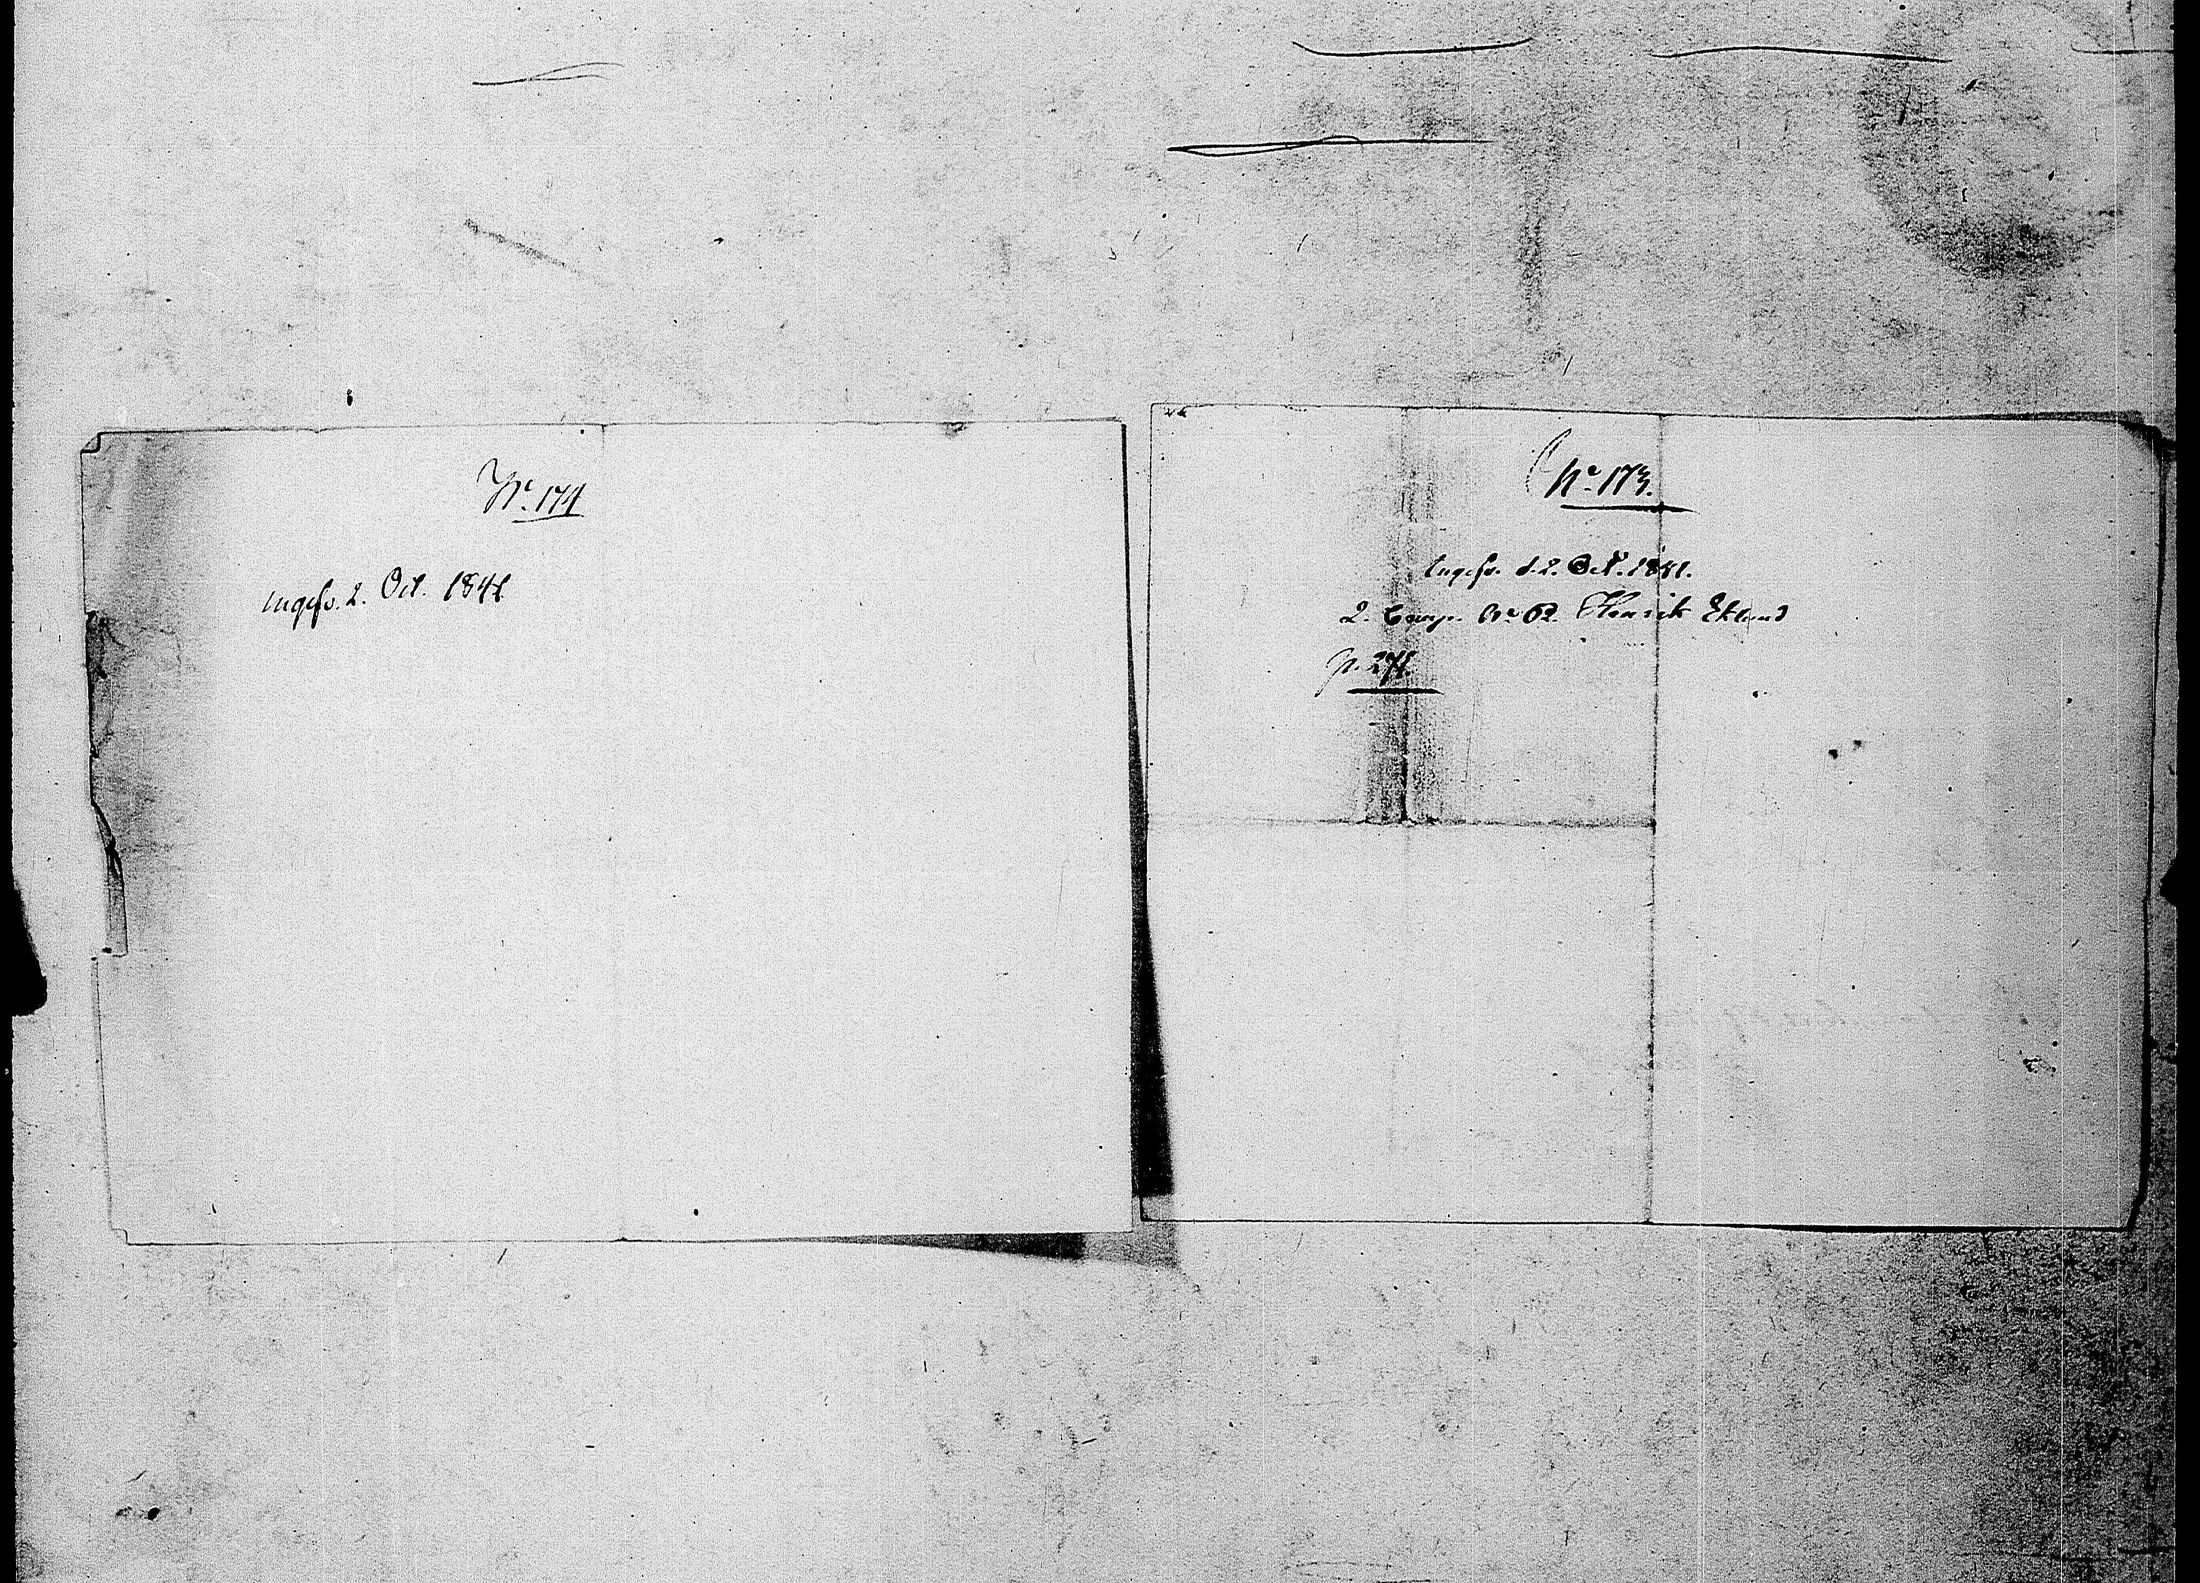 No. 174
Ingefn. 2. Oct. 1841
No. 173.
Ingefn. d. 2. Oct. 1841.
2. Comp. No 62. Henrik Eklund
p. 271.